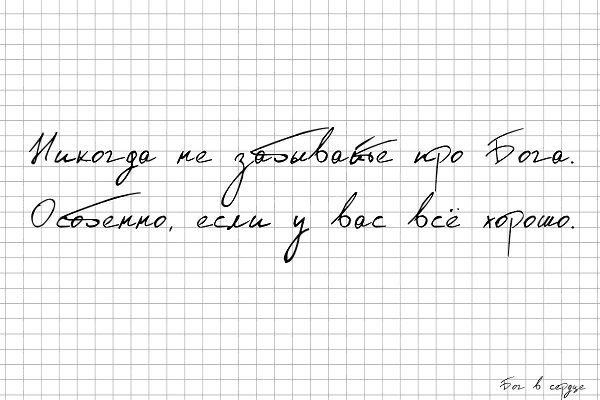 Никогда не забывайте про Бога.
Особенно, если у вас всё хорошо.
Бог в сердце